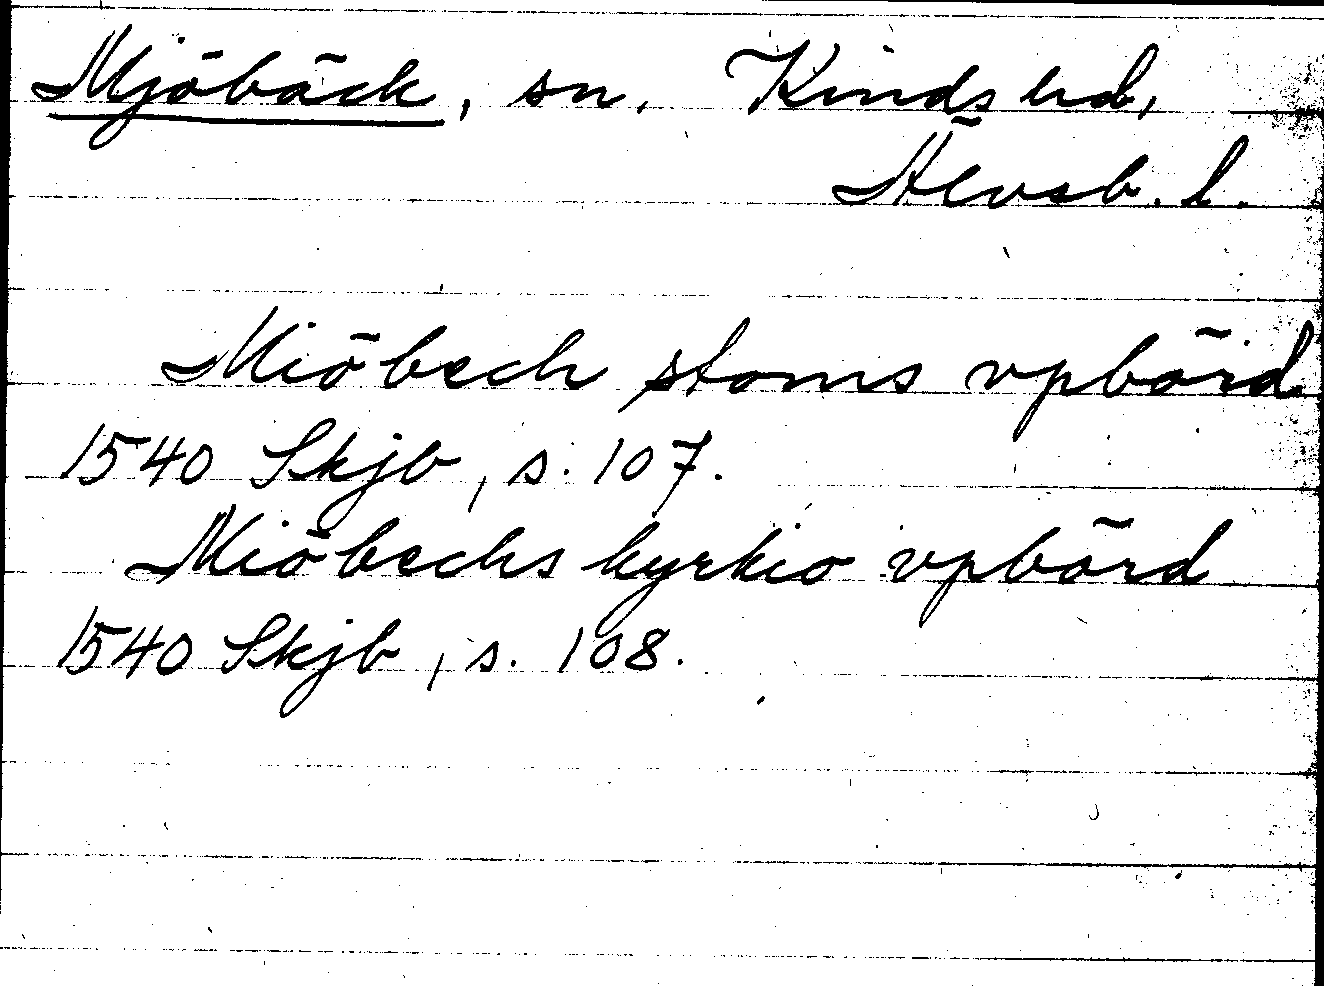 Mjöbäck, sn, Kinds hd,
Älvsb. l.
Miöbech stoms vpbörd
1540 Skjb, s. 107.
Miöbechs kyrkio vpbörd
1540 Skjb, s. 108.